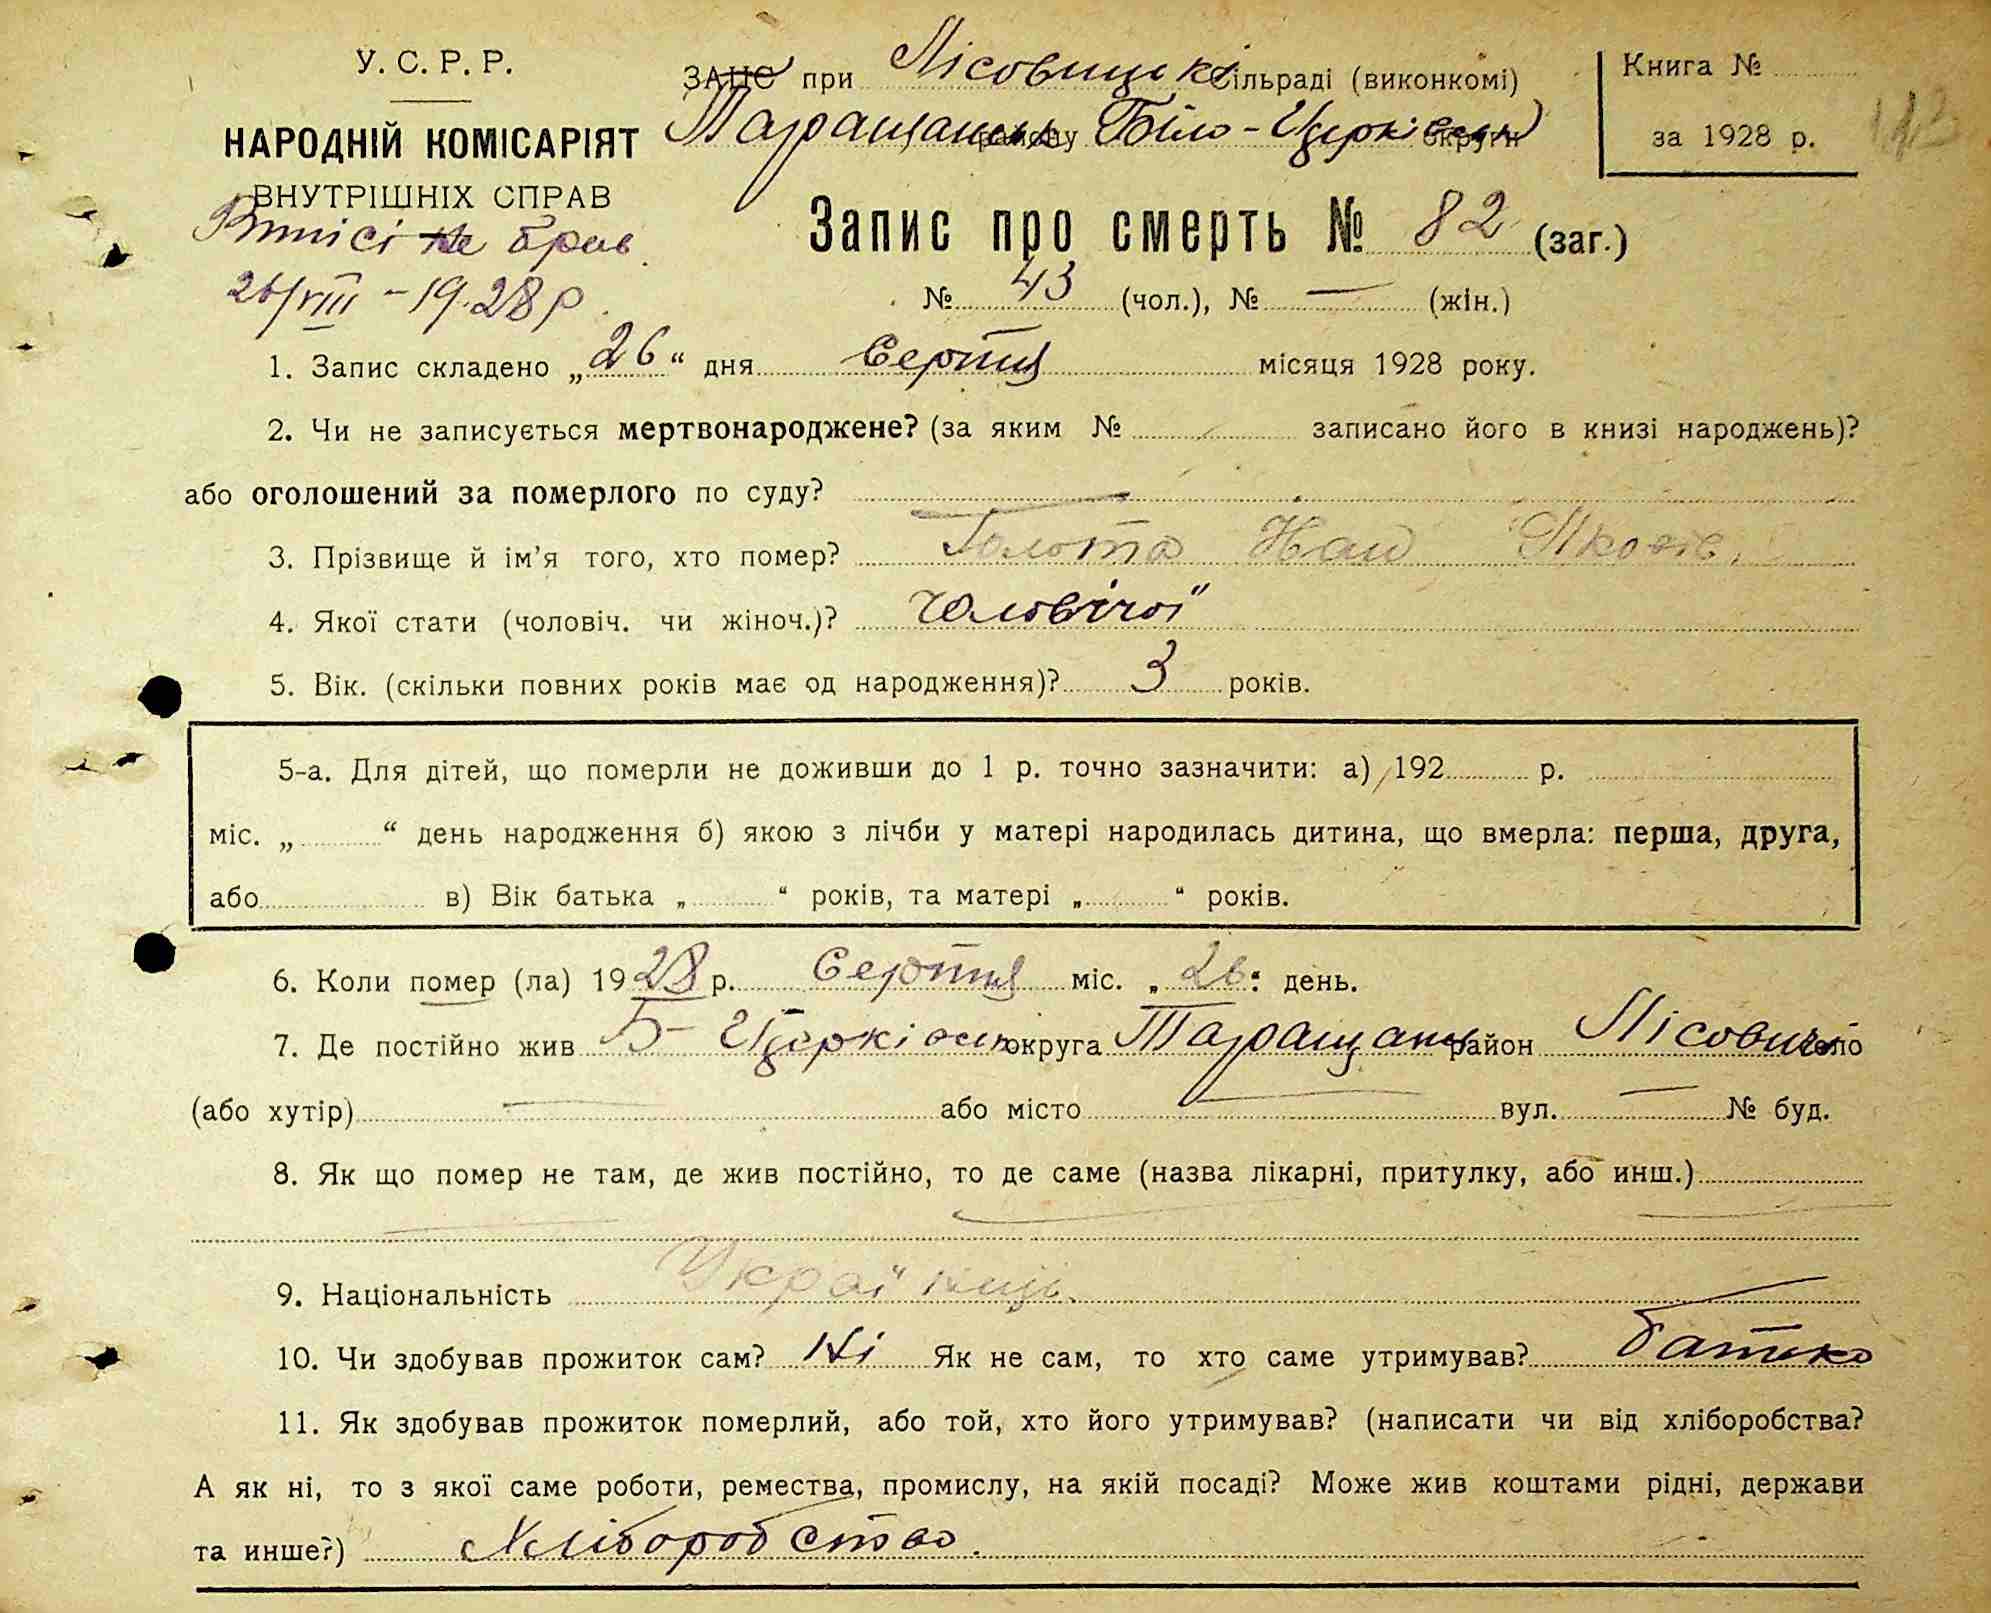 У. С. Р. Р.
НАРОДНІЙ КОМІСАРІЯТ
ВНУТРІШНІХ СПРАВ
Виписі не брав
26/VIII – 1928 р.
ЗАГС при Лісовицькі сільраді (виконкомі)
Таращанськ району Біло-Церківськ округи
Книга №
за 1928 р.
Запис про смерть № 82 (заг.)
№ 43 (чол.), № — (жін.)
1. Запис складено „26“ дня Серпня місяця 1928 року.
2. Чи не записується мертвонароджене? (за яким № записано його в книзі народжень)?
або оголошений за померлого по суду? —
3. Прізвище й ім’я того, хто помер? Голота Яків.
4. Якої стати (чоловіч. чи жіноч.)? Чоловічої
5. Вік. (скільки повних років має од народження)? 3 років.
5-а. Для дітей, що померли не доживши до 1 р. точно зазначити: а) 192 р.
міс. „ “ день народження б) якою з лічби у матері народилась дитина, що вмерла: перша, друга,
або в) Вік батька „ “ років, та матері „ “ років.
6. Коли помер (ла) 1928 р. Серпня міс. „26“ день.
7. Де постійно жив Б-Церківськ округа Таращанськ район Лісовичі село
(або хутір) — або місто — вул. — № буд.
8. Як що помер не там, де жив постійно, то де саме (назва лікарні, притулку, або инш.)
9. Національність Українець.
10. Чи здобував прожиток сам? Ні Як не сам, то хто саме утримував? батько
11. Як здобував прожиток померлий, або той, хто його утримував? (написати чи від хліборобства?
А як ні, то з якої саме роботи, ремества, промислу, на якій посаді? Може жив коштами рідні, держави
та инше?) Хліборобство.